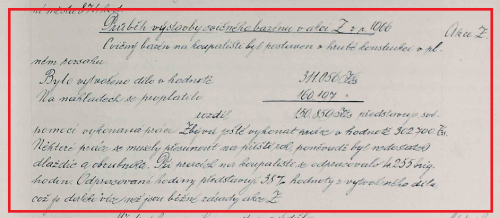 Průběh výstavby cvičného bazénu v akci Z v r. 1966 Akce Z.
Cvičný bazén na koupališti byl postaven v hrubé konstrukci v pl-
ném rozsahu
Bylo vytvořeno dílo v hodnotě 311.056 Kčs
Na nákladech se proplatilo 160.197
rozdíl 150.859 Kčs představuje své-
pomocí vykonaná práce. Zbývá ještě vykonat práce v hodnotě 302.700 Kčs.
Některé práce se musely přesunout na příští rok, poněvadž byl nedostatek
dlaždic a obrubníků. Při pracích na koupališti se odpracovalo 14.255 brig.
hodin. Odpracované hodiny představují 38% hodnoty z vytvořeného díla,
což je daleko více než jsou běžné zásady akce Z.